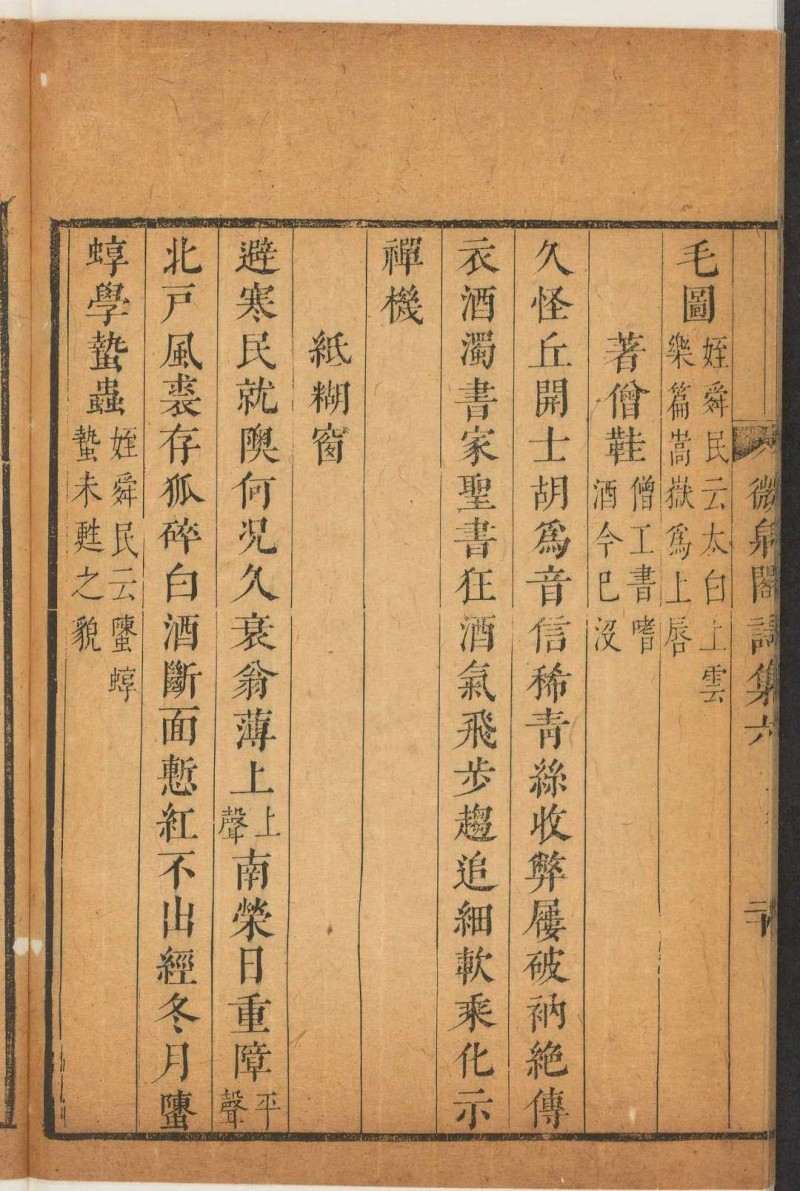 微泉閣詩集六
毛圖姪舜民云太白上雲
樂篇嵩嶽爲上唇
著僧鞋僧工書嗜
酒今已沒
久怪丘開士胡爲音信稀靑絲收弊屨破衲絶傳
衣酒濁書家聖書狂酒氣飛步趨追細軟乘化示
禪機
紙糊窗
避寒民就隩何况久衰翁薄上上聲南榮日重障平聲
北戸風裘存狐碎白酒斷面慙紅不出經冬月䗬
蜳學蟄蟲姪舜民云䗬蜳
蟄未甦之貌